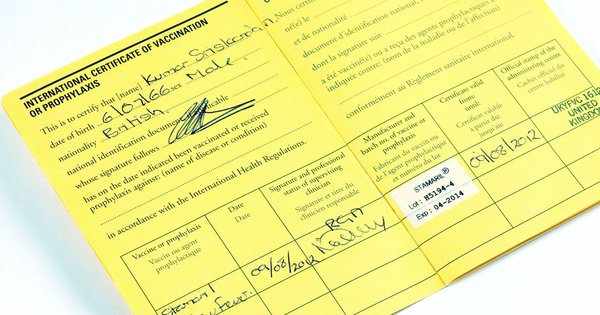 INTERNATIONAL CERTIFICATE OF VACCINATION
OR PROPHYLAXIS
This is to certify that [name] Kumar
date of birth 6/07/66 Male.
nationality British.
national identification document, applicable
whose signature follows
has on the date indicated been vaccinated or received
prophylaxis against: (name of disease or condition)
in accordance with the International Health Regulations.
Vaccine or prophylaxis
Vaccin ou agent
prophylactique
Date
Date
Signature and professional
status of supervising
clinician
Signature et titre du
clinicien responsable
Stamaril
Fever
09/08/2012
RGN
Nous certifions
né(e) le
et de nationalité
document d'identification national,
dont la signature suit
a été vacciné(e) ou a reçu des agents prophylactiques
indiquée contre: (nom de la maladie ou de l'affection)
conformément au Règlement sanitaire international.
Manufacturer and
batch no. of vaccine or
prophylaxis
Fabricant du vaccin ou
de l'agent prophylactique
et numéro du lot
Certificate valid
from:
until:
Certificat valable
à partir du:
jusqu'au:
Official stamp of the
administering centre
Cachet officiel du
centre habilité
STAMARIL®
Lot: H5194-4
Exp: 04-2014
09/08/2012
UKYFVC 1612
UNITED
KINGDOM